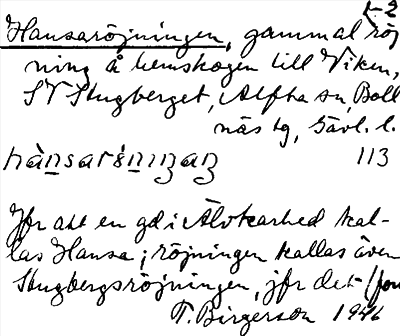 1-2
Hansaröjningen, gammal röj
ning å hemskogen till Viken,
SV Stugberget, Alfta sn, Boll
näs tg, Gävl. l.
113
Jfr att en gd i Älvkarhed kal-
las Hansa; röjningen kallas även
Stugbergsröjningen, jfr det (forts
T. Birgerson 1946